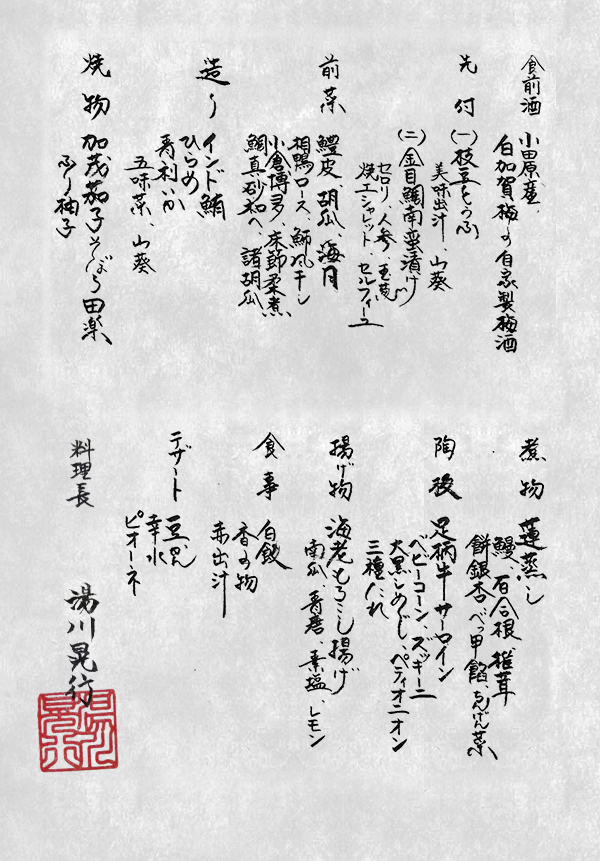 食前酒
小田原産、
白加賀梅の自家製梅酒
先付
(一)枝豆とうふ
美味出汁、山葵
(二)金目鯛南蛮漬け
セロリ、人参、玉葱
焼エシャレット、セルフィーユ
前菜
鱧皮、胡瓜、海月
相鴨ロース、鰤風干し
小倉博多、床節柔煮、
鯛真砂和へ、諸胡瓜
造り
インド鮪
ひらめ、
青利いか
五味菜、山葵
焼物
加茂茄子そぼろ田楽
ふり柚子
煮物
蓮蒸し
鰻、百合根、椎茸
餅銀杏、べっ甲餡、ちんげん菜
陶板
足柄牛サーロイン
ベビーコーン、ズッキーニ
大黒しめじ、ペティオニオン
三種たれ
揚げ物
海老もろこし揚げ
南瓜、青唐、素塩、レモン
食事
白飯
香の物
赤出汁
デザート
豆かん
幸水
ピオーネ
料理長
湯川晃行